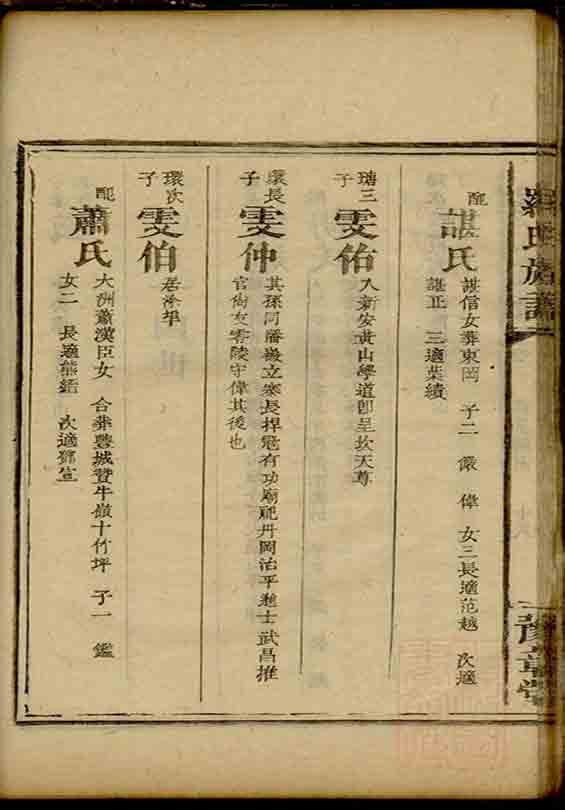 羅氏族譜
豫章堂
配
諶氏
諶信女葬東岡 子二 儼 偉 女三長適范越 次適
諶正 三適葉績
瑭三
子
雯佑
入新安黃山學道卽呈坎天尊
環長
子
雯仲
其孫同潘嚴立寨長捍冦有功廟祀丹岡治平進士武昌推
官尙友零陵守偉其後也
環次
子
雯伯
居
配
蕭氏
大洲蕭漢臣女 合葬豐城贊牛嶺十竹坪 子一 鑑
女二 長適熊 次適鄧